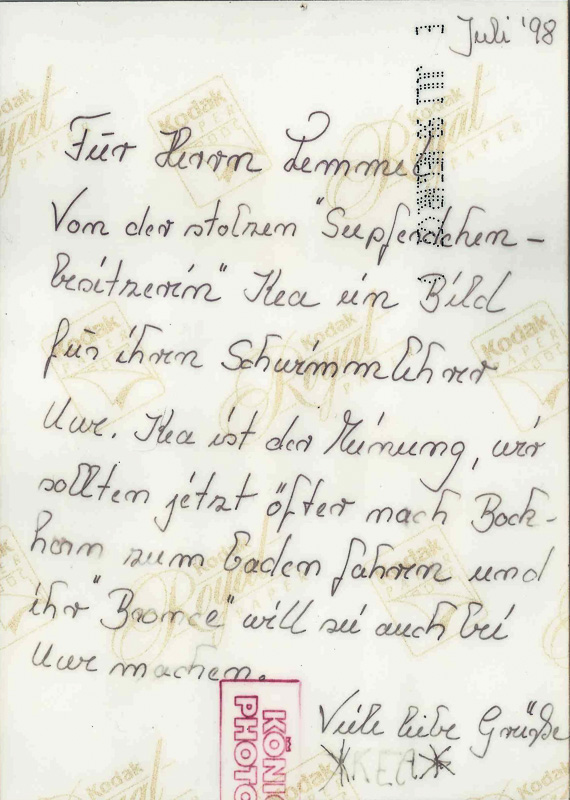 Juli '98
Für Herrn Lemmel
Von der stolzen "Seepferdchen-
besitzerin" Kea ein Bild
für ihren Schwimmlehrer
Uwe. Kea ist der Meinung, wir
sollten jetzt öfter nach Bock-
horn zum baden fahren und
ihr "Bronce" will sie auch bei
Uwe machen.
Viele liebe Grüße
KEA
KÖNIG
PHOTO
Kodak
Royal
PAPER